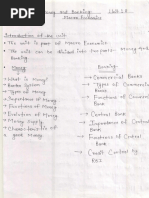 Money and Banking
Unit-2
Macro Economics
Introduction of the unit
This unit is part of Macro Economics
This unit can be divided into two parts - money and
Banking
Money
Banking
What is money?
Commercial Banks
Barter System
Types of Commercial
Types of money
Banks
Importance of Money
Functions of Commercial
Functions of Money
Banks
Evolution of Money
Central Bank
Money Supply
Importance of Central
Characteristics of
Bank
good money
Functions of Central
Bank
Credit Control by
RBI